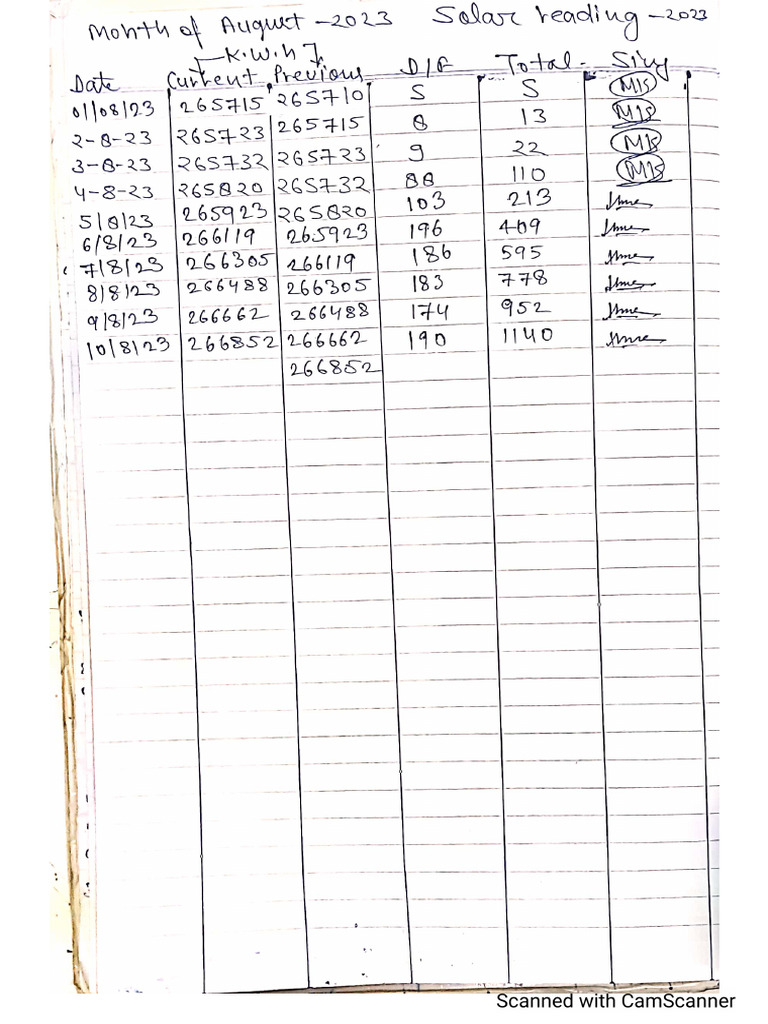 Month of August -2023 Solar reading -2023
[K.W.h].
Date Current Previous D/F Total - Sing
01/08/23 265715 265710 5 5 MIS
2-8-23 265723 265715 8 13 MIS
3-8-23 265732 265723 9 22 MIS
4-8-23 265820 265732 88 110 MIS
5/8/23 265923 265820 103 213
6/8/23 266119 265923 196 409
7/8/23 266305 266119 186 595
8/8/23 266488 266305 183 778
9/8/23 266662 266488 174 952
10/8/23 266852 266662 190 1140
266852
Scanned with CamScanner